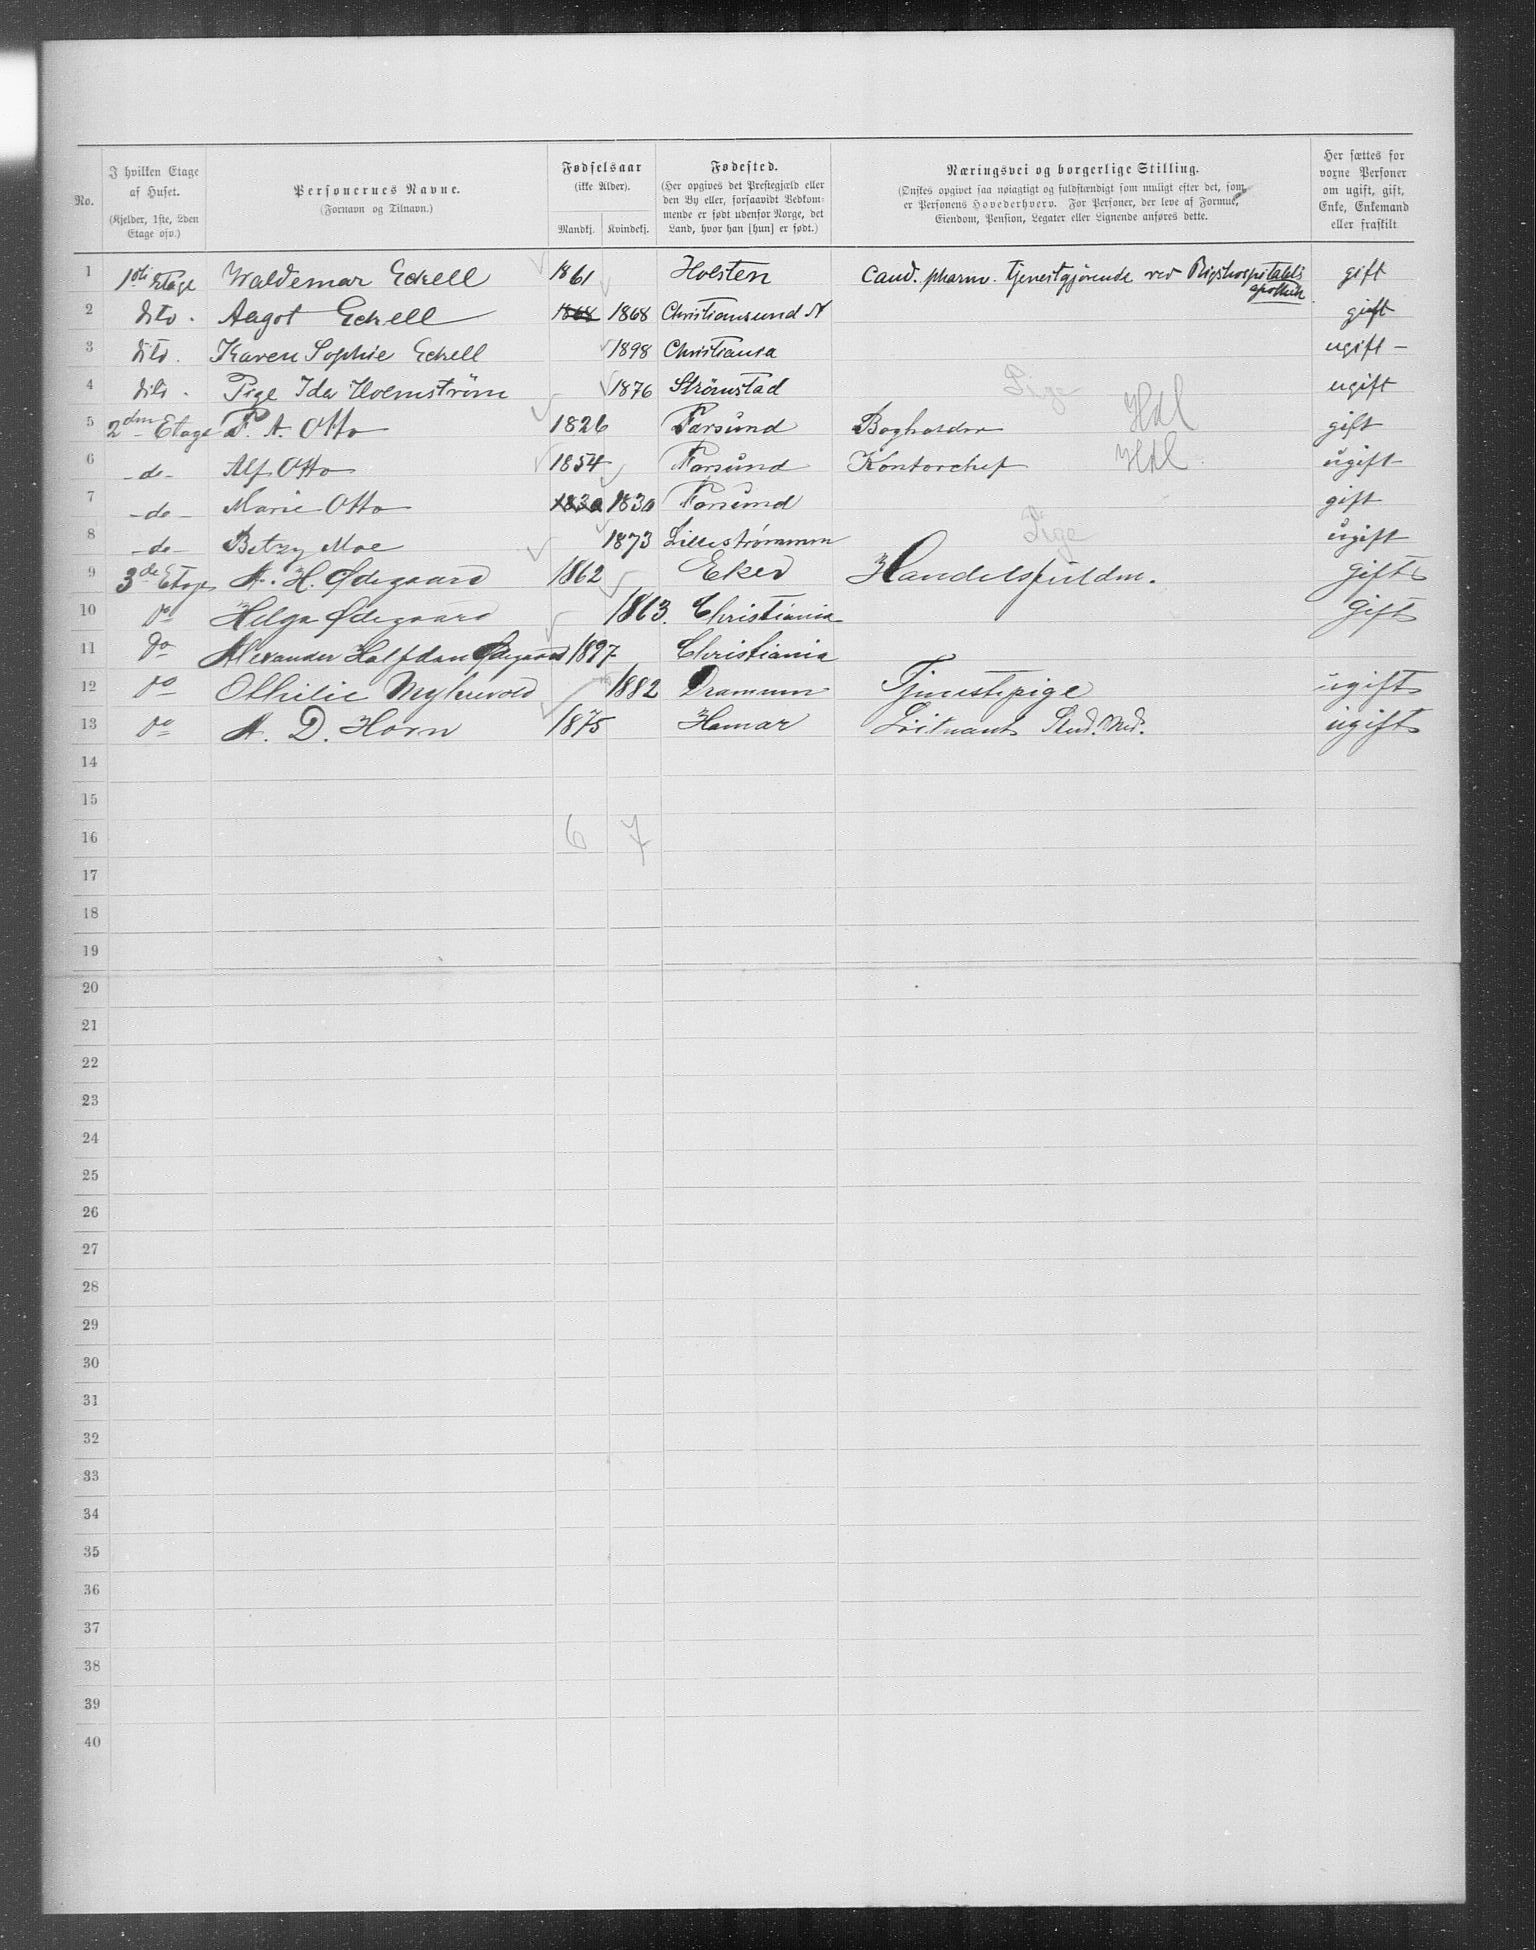 No.
I hvilken Etage af Huset. (Kjelder, 1ste, 2den Etage osv.)
Personernes Navne. (Fornavn og Tilnavn.)
Fødselsaar (ikke Alder).
Mandkj. Kvindekj.
Fødested. (Her opgives det Prestegjæld eller den By eller, forsaavidt Vedkommende er født udenfor Norge, det Land, hvor han [hun] er født.)
Næringsvei og borgerlige Stilling. (Ønskes opgivet saa nøiagtigt og fuldstændigt som muligt efter det, som er Personens Hovederhverv. For Personer, der leve af Formue, Eiendom, Pension, Legater eller Lignende anføres dette.
Her sættes for voxne Personer om ugift, gift, Enke, Enkemand eller fraskilt
1 1ste Etage Waldemar Eckell 1861 Holsten Cand. pharm. tjenestgjørende ved Rigshospitalets apothek. gift
2 dito. Aagot Eckell 1868 1868 Christiansund N gift
3 dito. Karen Sophie Eckell 1898 Christiania ugift -
4 dito. Pige Ida Holmström 1876 Strömstad Pige ugift
5 2den Etage P. A. Otto 1826 Farsund Bogholder Hdl gift
6 - do - Alf Otto 1854 Farsund Kontorchef Hdl. ugift
7 - do - Marie Otto 1830 1830 Farsund gift
8 - do - Betzy Moe 1873 Lillestrømmen Pige ugift
9 3de Etage A. H. Ødegaard 1862 Eker Handelsfuldm. gift
10 do Helga Ødegaard 1863. Christiania gift
11 Do Alexander Halfdan Ødegaard 1897 Christiania
12 do Othilie Myhrvold 1882 Drammen Tjenestepige ugift
13 do A. D. Horn 1875 Hamar Löitnant Stud. Med. ugift
14
15
16 6 7
17
18
19
20
21
22
23
24
25
26
27
28
29
30
31
32
33
34
35
36
37
38
39
40